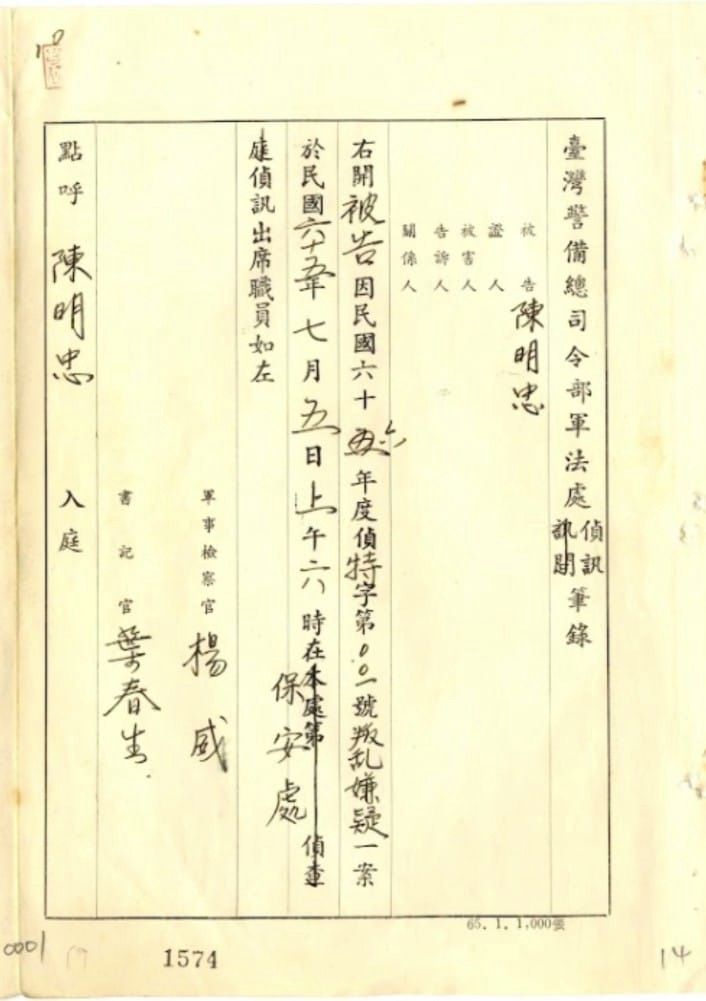 臺灣警備總司令部軍法處偵訊訊問筆錄
被告 陳明忠
證人
被害人
告訴人
關係人
右開被告因民國六十五六年度偵特字第00一號叛乱嫌疑一案
於民國六十五年七月五日上午 時在本處第 偵查
保安處
庭偵訊出席職員如左
軍事檢察官 楊威
書記官 葉春生
點呼 陳明忠 入庭
65. 1. 1,000張
0001
1574
14